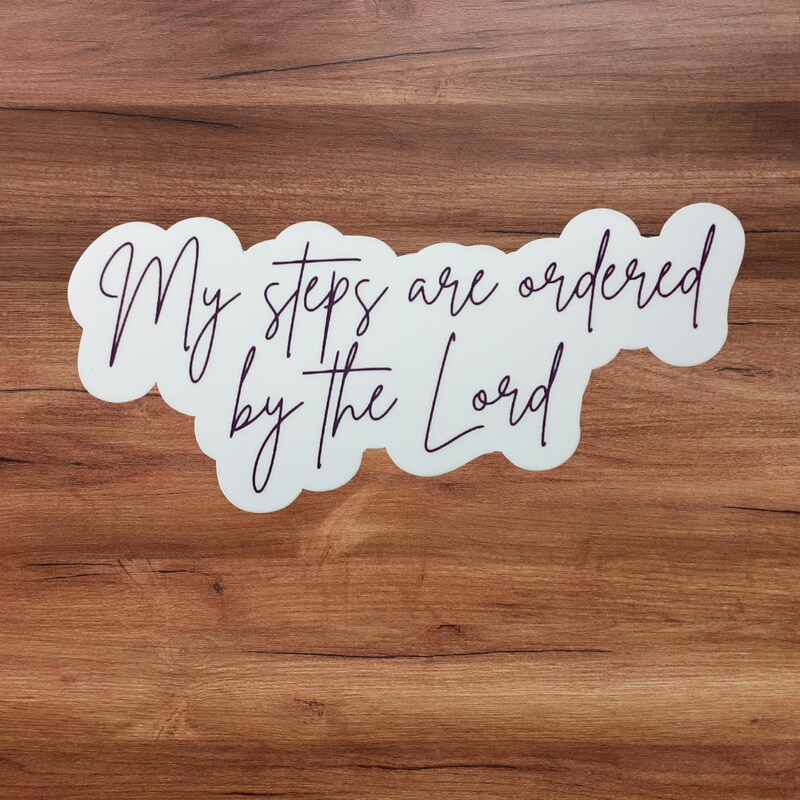 My steps are ordered
by the Lord